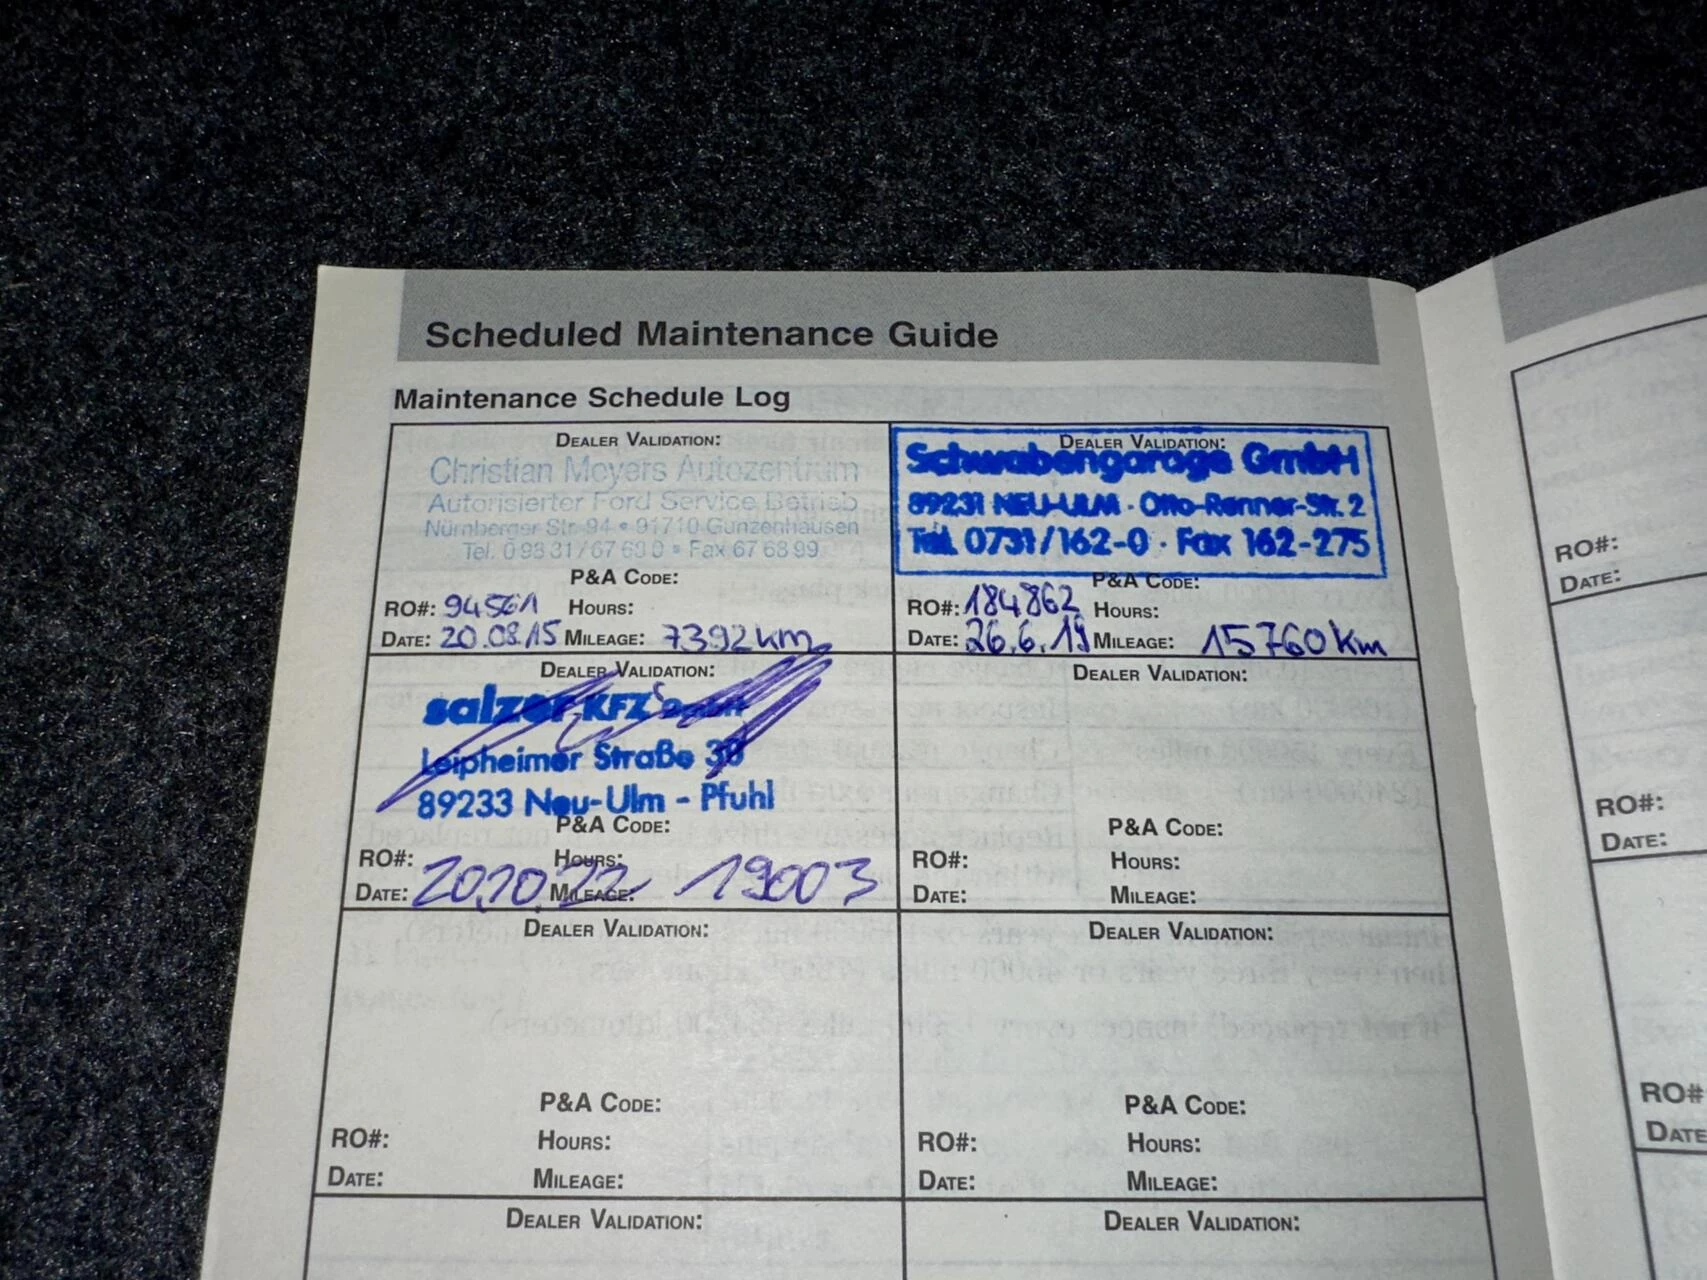 Scheduled Maintenance Guide
Maintenance Schedule Log
DEALER VALIDATION:
Christian Meyers Autozentrum
Autorisierter Ford Service Betrieb
Nürnberger Str. 94 • 91710 Gunzenhausen
Tel. 0 98 31 / 67 68 0 • Fax 67 68 99
P&A CODE:
RO#: 94561 HOURS:
DATE: 20.08.15 MILEAGE: 7392 km
DEALER VALIDATION:
Schwabengarage GmbH
89231 NEU-ULM · Otto-Renner-Str. 2
Tel. 0731/162-0 · Fax 162-275
P&A CODE:
RO#: 184862 HOURS:
DATE: 26.6.19 MILEAGE: 15760 km
DEALER VALIDATION:
salzer KFZ GmbH
Leipheimer Straße 30
89233 Neu-Ulm - Pfuhl
P&A CODE:
RO#: HOURS:
DATE: 20.10.22 MILEAGE: 19003
DEALER VALIDATION:
P&A CODE:
RO#: HOURS:
DATE: MILEAGE:
DEALER VALIDATION:
P&A CODE:
RO#: HOURS:
DATE: MILEAGE:
DEALER VALIDATION:
P&A CODE:
RO#: HOURS:
DATE: MILEAGE:
DEALER VALIDATION:
DEALER VALIDATION:
RO#:
DATE:
RO#:
DATE:
RO#
DATE